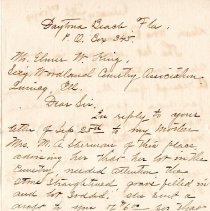 Daytona Beach Fla.
P. O. Box 345.
Mr. Elmer W. King,
Secy Woodland Cemetery Association
Dear Sir,
In reply to your
letter of Sep 25th to my mother
Mrs. M. A. Sherman of this place
advising her that her lot in the
Cemetery, needed attention the
stone straightened, grave filled in
and lot sodded, she sent a